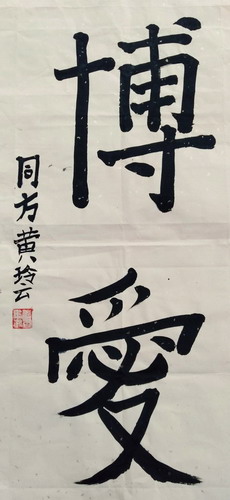 博愛
同方黄玲云